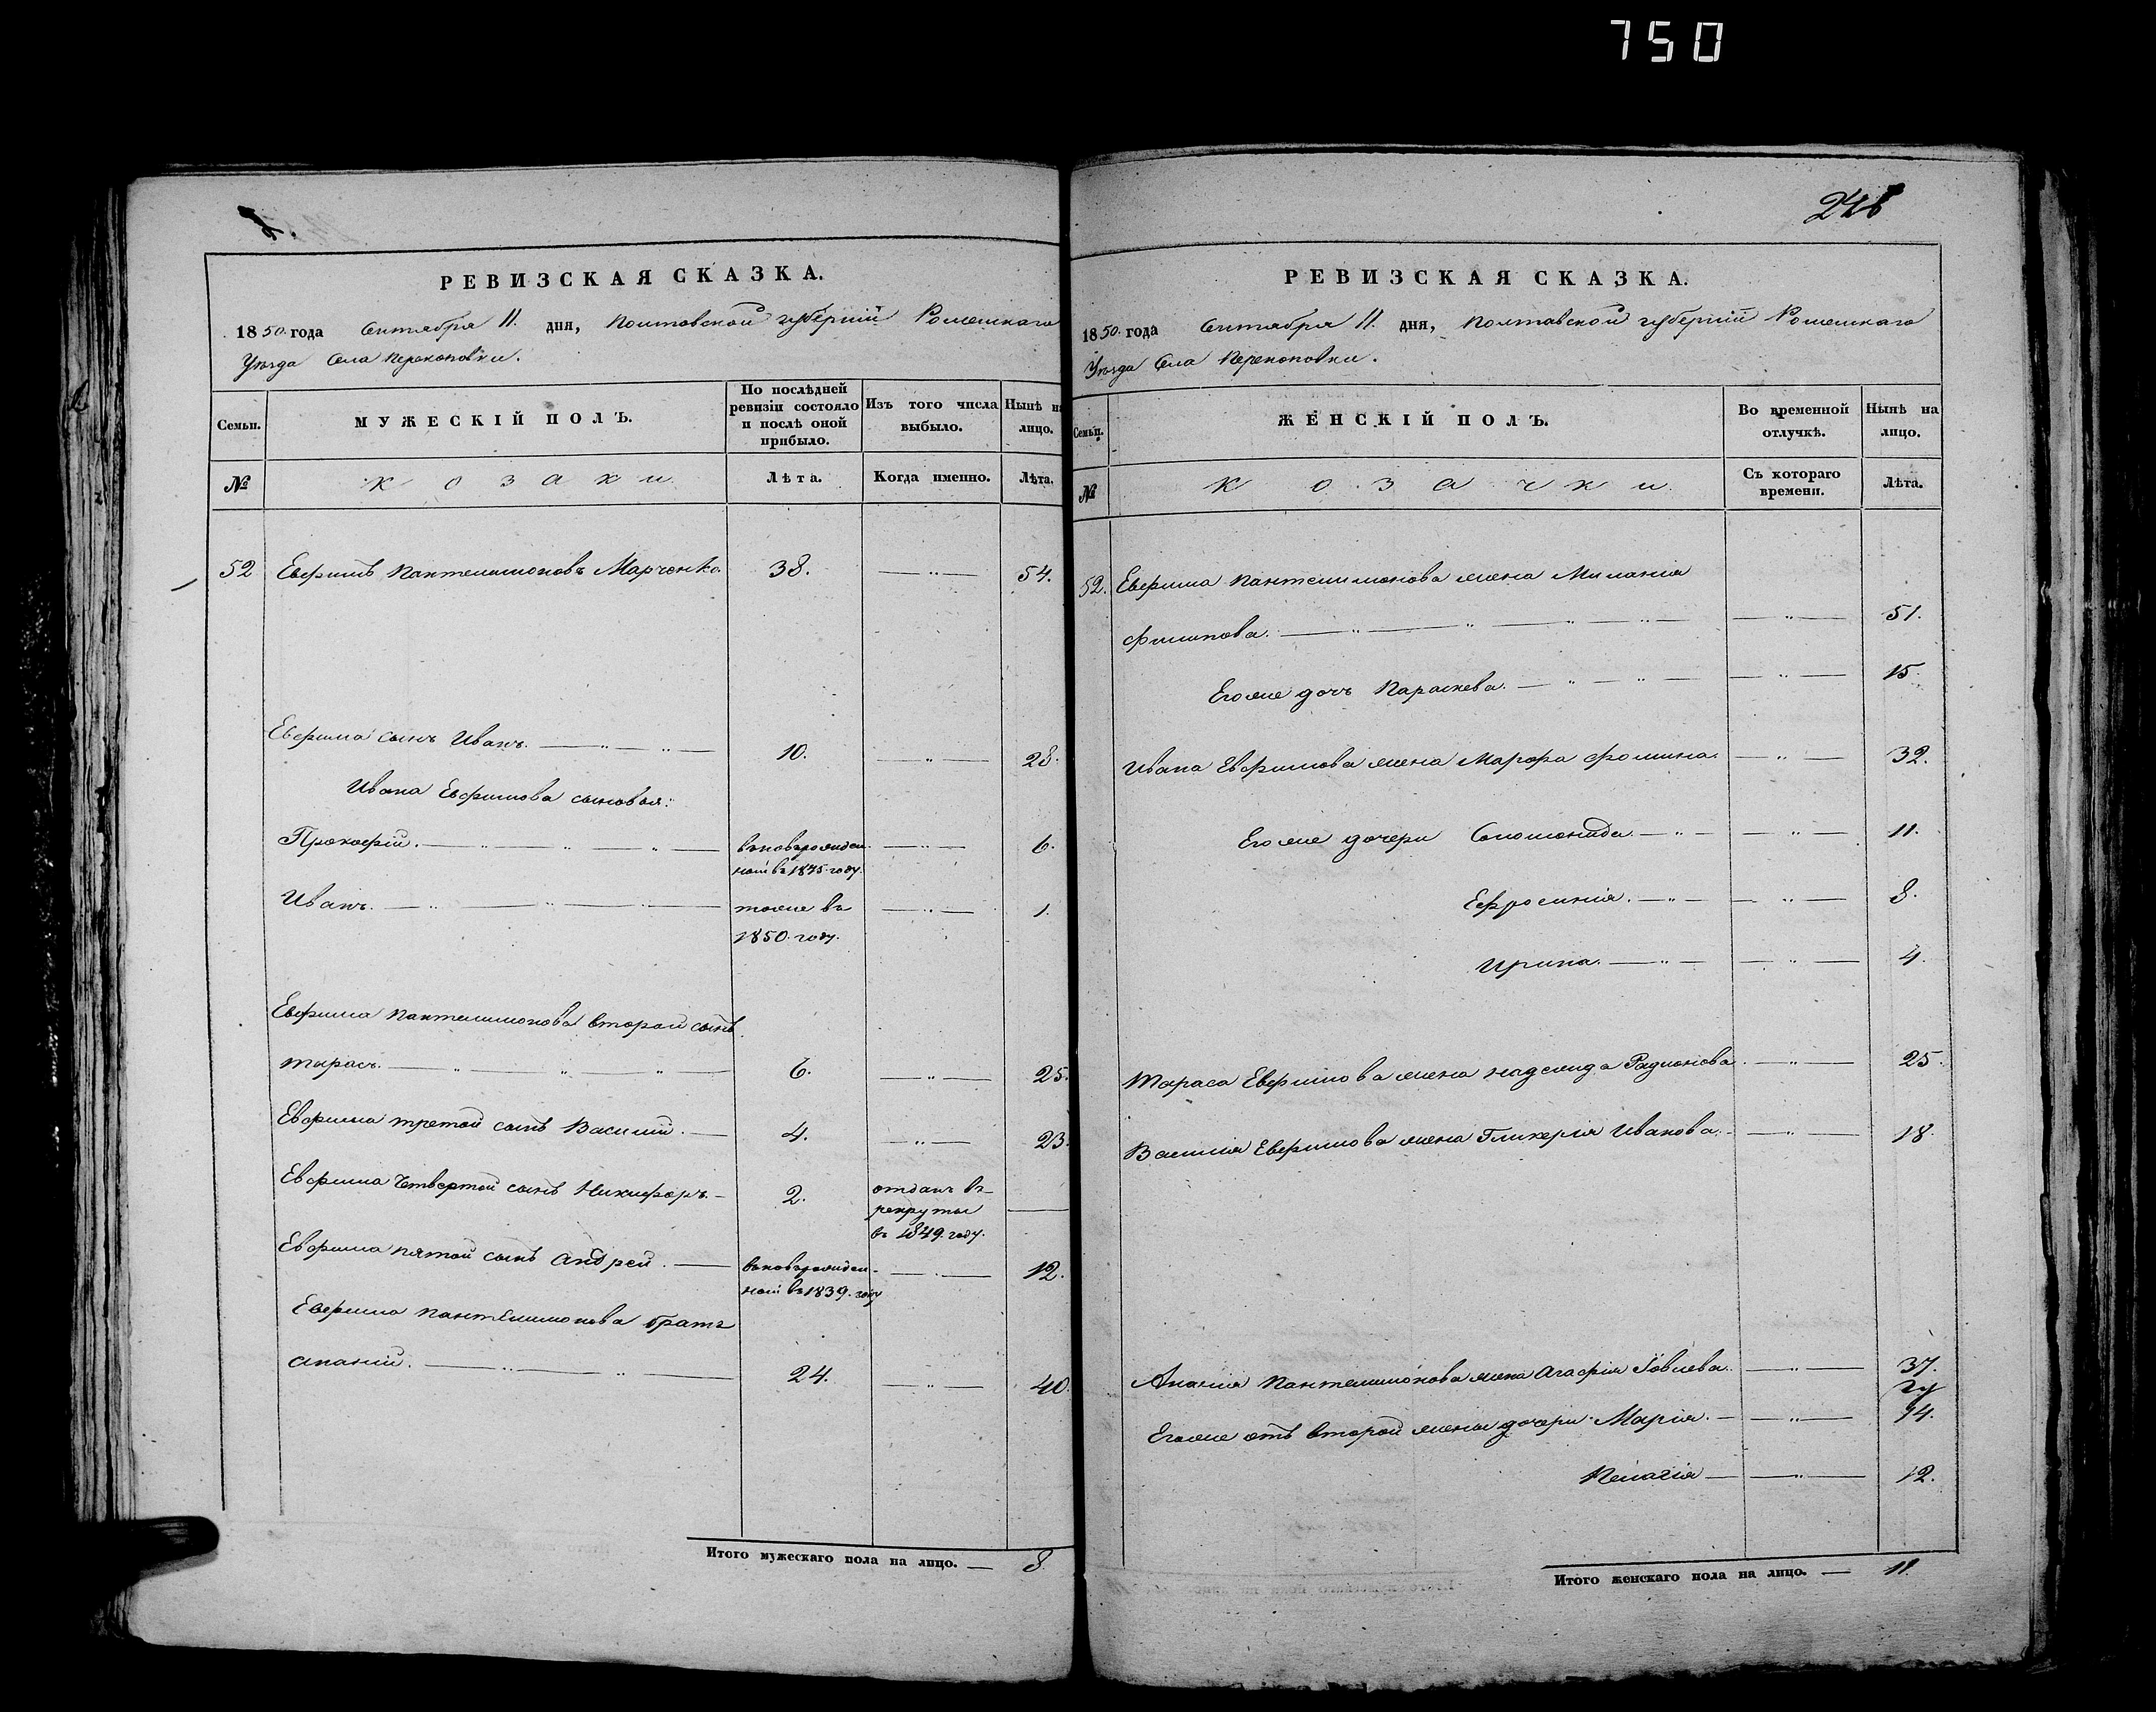 750
РЕВИЗСКАЯ СКАЗКА.
1850 года Сентября 11. дня, Полтавской губерніи Роменскаго
Уѣзда Села Перекоповки.
Семьи.
МУЖЕСКІЙ ПОЛЪ.
По послѣдней ревизіи состояло и послѣ оной прибыло.
Изъ того числа выбыло.
Нынѣ на лицо.
№
Козаки
Лѣта.
Когда именно.
Лѣта.
52 Евфимъ Пантелимоновъ Марченко. 38. —„— 54.
Евфима сынъ Иванъ. —„—„— 10. —„— 28.
Ивана Евфимова сыновья:
Прокофій. —„—„—„— вновьрожден- —„— 6.
ной въ 1845. году.
Иванъ. —„—„—„— тоже въ —„— 1.
1850. году.
Евфима Пантелимонова второй сынъ
Тарасъ. —„—„—„— 6. —„— 25.
Евфима третой сынъ Василій. — 4. —„— 23.
Евфима Четвертой сынъ Никифоръ. — 2. отданъ въ
рекруты —
въ 1849. году.
Евфима пятой сынъ Андрей. — вновьрожден- —„— 12.
ной въ 1839. году
Евфима Пантелимонова братъ
Ананій. —„—„— 24. —„— 40.
Итого мужескаго пола на лицо. — 8.
246
РЕВИЗСКАЯ СКАЗКА.
1850 года Сентября 11. дня, Полтавской губерніи Роменскаго
Уѣзда Села Перекоповки.
Семьи.
ЖЕНСКІЙ ПОЛЪ.
Во временной отлучкѣ.
Нынѣ на лицо.
№
Козачки.
Съ котораго времени.
Лѣта.
52. Евфима Пантелимонова жена Миланія
Филипова. —„—„—„—„— —„— 51.
Егоже дочь Параскева. —„—„— —„— 15.
Ивана Евфимова жена Марфа Фомина. —„— 32.
Егоже дочери Соломонида. —„— —„— 11.
Ефросинія. —„— —„— 8.
Ирина. —„— —„— 4.
Тараса Евфимова жена Надежда Радионова. —„— 25.
Василія Евфимова жена Гликерія Иванова. —„— 18.
Ананія Пантелимонова жена Агафія Іовлева. —„— 37.
Егоже отъ второй жены дочери: Марія. — —„— 14.
Пелагія — —„— 12.
Итого женскаго пола на лицо. — 11.